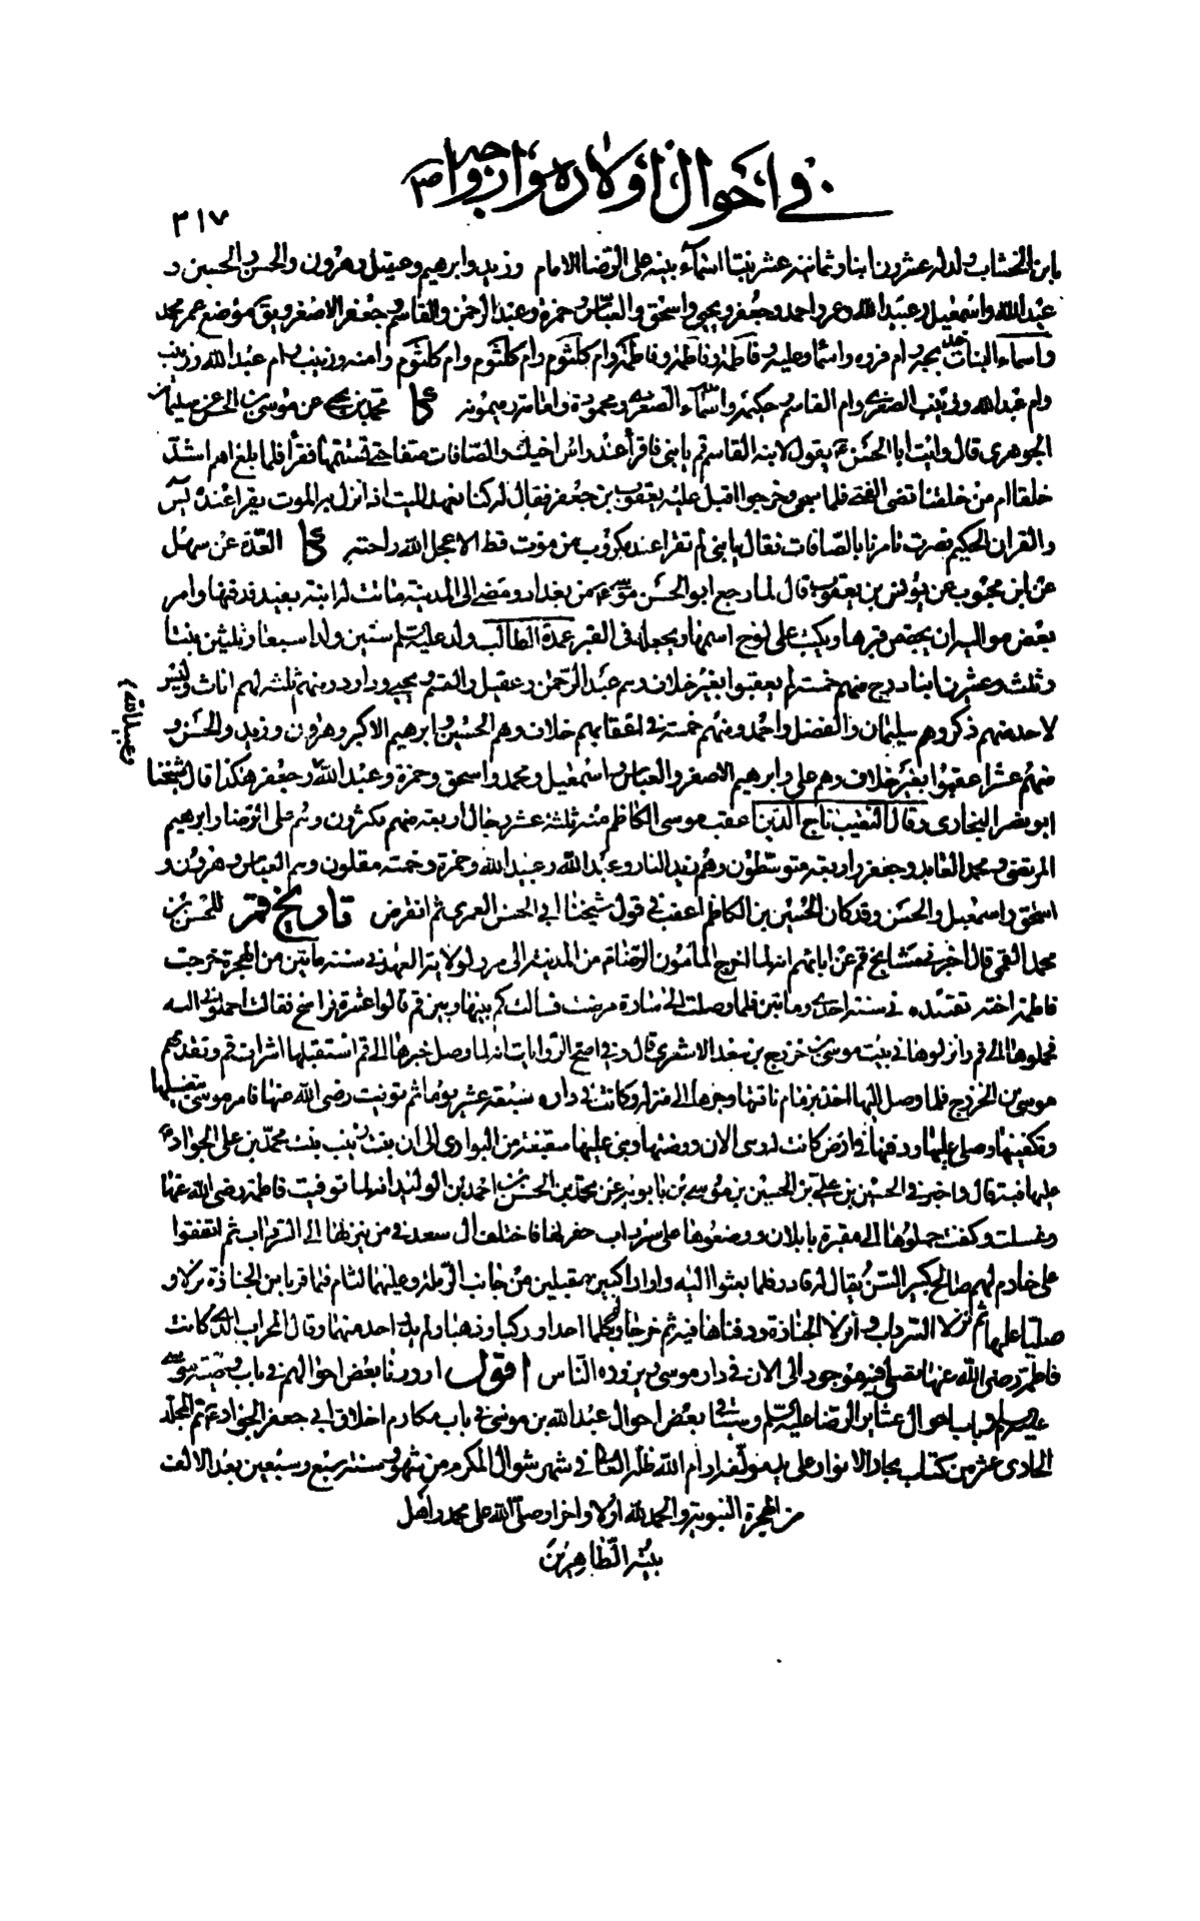 في احوال اولاده وازواجه ص
٣١٧
ابن الخشاب ولد له عشرون ابنا وثمانية عشر بنتا اسمآء بنيه على الرضا الامام وزيد وابراهيم وعقيل وهرون والحسن والحسين و
عبد الله واسمعيل وعبيد الله وعمر واحمد وجعفر ويحيى واسحق والعباس وحمزة وعبد الرحمن والقاسم وجعفر الاصغر ويق موضع عمر محمد
واسماء البنات خديجة وام فروه واسما وعلية وفاطمة وفاطمة وام كلثوم وام كلثوم وام كلثوم وامنه وزينب وام عبد الله وزينب
وام عبد الله وزينب الصغرى وام القاسم وحكيمة واسمآء الصغرى ومحمودة وامامة وميمونه كا محمد بن يحيى عن موسى بن الحسن عن سليمان
الجوهرى قال رايت ابا الحسن ع يقول لابنه القاسم قم يا بنى فاقرأ عند راس اخيك والصافات صفا حتى تستتمها فقرأ فلما بلغ اهم اشد
خلقا ام من خلقنا قضى الفتى فلما سجى وخرجوا اقبل عليه يعقوب بن جعفر فقال له كنا نعهد الميت اذا نزل به الموت يقرا عنده يس
والقران الحكيم فصرت تامرنا بالصافات فقال يا بنى لم تقرا عند مكروب من موت قط الا عجل الله راحته كا العدة عن سهل
عن ابن محبوب عن يونس بن يعقوب قال لما رجع ابو الحسن موسى ع من بغداد ومضى الى المدينة ماتت له ابنة بفيد فدفنها وامر
بعض مواليه ان يجصص قبرها ويكتب على لوح اسمها ويجعله في القبر عمدة الطالب ولد عليه السلم ستين ولدا سبعا وثلثين بنتا
وثلثة وعشرين ابنا درج منهم خمسة لم يعقبوا بغير خلاف وهم عبد الرحمن وعقيل والقسم ويحيى وداود ومنهم ثلثة لهم اناث وليس
لاحد منهم ذكر وهم سليمان والفضل واحمد ومنهم خمسة في اعقابهم خلاف وهم الحسين وابراهيم الاكبر وهرون وزيد والحسن و
منهم عشرة اعقبوا بغير خلاف وهم على وابراهيم الاصغر والعباس واسمعيل ومحمد واسحق وحمزة وعبد الله وجعفر هكذا قال شيخنا
وعبيد الله ع
ابو نصر البخارى وقال النقيب تاج الدين اعقب موسى الكاظم من ثلثة عشر رجلا اربعة منهم مكثرون وهم على الرضا وابراهيم
المرتضى ومحمد العابد وجعفر واربعة متوسطون وهم زيد النار وعبد الله وعبيد الله وحمزة وخمسة مقلون وهم العباس وهرون و
اسحق واسمعيل والحسن وقد كان الحسين بن الكاظم اعقب في قول شيخنا ابى الحسن العمرى ثم انقرض تاريخ قم للحسن بن
محمد القمى قال اخبرني مشايخ قم عن ابائهم انه لما اخرج المأمون الرضا ع من المدينة الى مرو لولاية العهد في سنة مأتين من الهجرة خرجت
فاطمة اخته تقصده في سنة احدى ومأتين فلما وصلت الى ساوة مرضت فسالت كم بينها وبين قم قالوا عشرة فراسخ فقالت احملونى اليه
فحملوها الى قم وانزلوها في بيت موسى بن خزرج بن سعد الاشعرى قال وفي اصح الروايات انه لما وصل خبرها الى قم استقبلها اشراف قم وتقدمهم
موسى بن الخزرج فلما وصل اليها اخذ بزمام ناقتها وجرها الى منزله وكانت في داره سبعة عشر يوما ثم توفيت رضى الله عنها فامر موسى بتغسيلها
وتكفينها وصلى عليها ودفنها في ارض كانت له وهى الان روضتها وبنى عليها سقيفة من البوارى الى ان بنت زينب بنت محمد بن على الجواد ع
عليها قبة قال واخبرنى الحسين بن على بن الحسين بن موسى بن بابويه عن محمد بن الحسن بن احمد بن الوليد انه لما توفيت فاطمة رضى الله عنها
وغسلت وكفنت حملوها الى مقبرة بابلان ووضعوها على سرداب حفر لها فاختلف ال سعد في من ينزلها الى السرداب ثم اتفقوا
على خادم لهم صالح كبير السن يقال له قادر فلما بعثوا اليه راوا راكبين مقبلين من جانب الرملة وعليهما لثام فلما قربا من الجنازة نزلا و
صليا عليها ثم نزلا السرداب وانزلا الجنازة ودفناها فيه ثم خرجا ولم يكلما احدا وركبا وذهبا ولم يدر احد من هما وقال المحراب الذى كانت
فاطمة رضى الله عنها تصلى فيه موجود الى الان في دار موسى ويزوره الناس اقول اوردنا بعض احوالهم في باب وصيته
عليه السلم وباب احوال عشاير الرضا عليه السلم وسيأتى بعض احوال عبد الله بن موسى في باب مكارم اخلاق ابى جعفر الجواد ع تم المجلد
الحادى عشر من كتاب بحار الانوار على يد مؤلفه ادام الله ظله العالى في شهر شوال المكرم من شهور سنة سبع وسبعين بعد الالف
من الهجرة النبوية والحمد لله اولا واخرا وصلى الله على محمد واهل
بيته الطاهرين